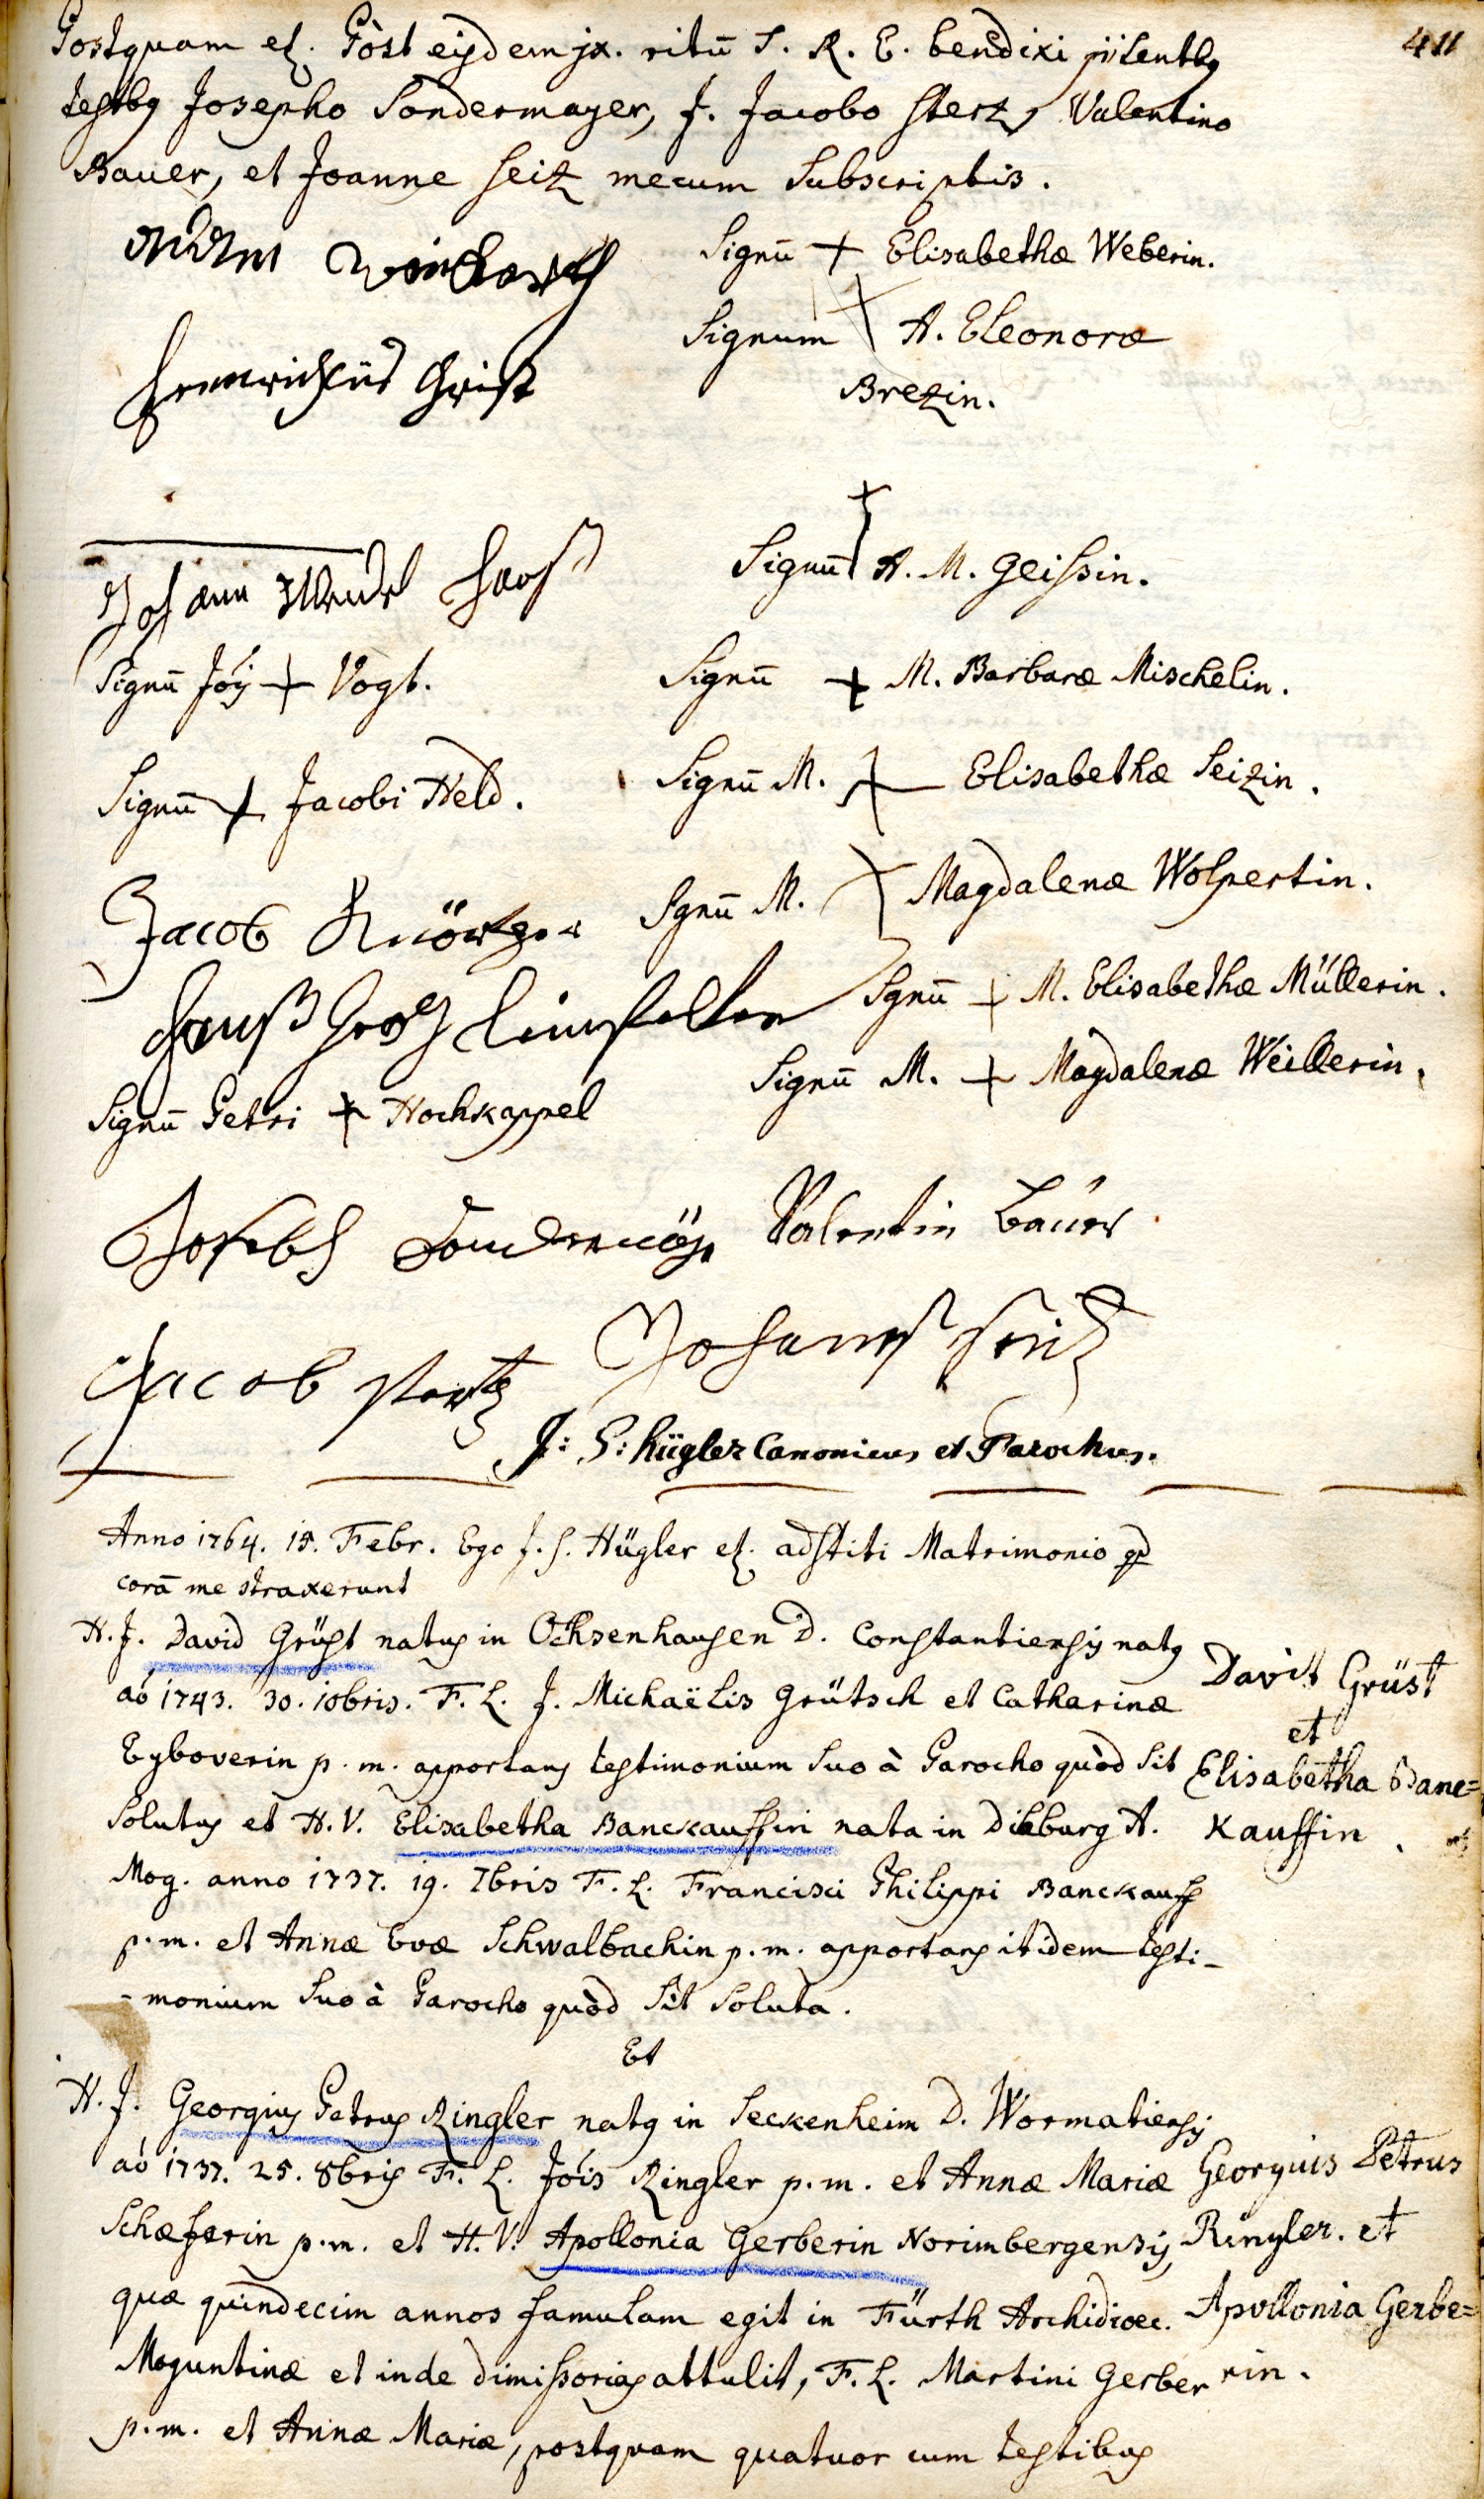 411
Postquam et. Pòst eisdem jx. ritū S. R. E. bendixi
testbg Josepho Sondermayer, J. Jacobo Stertz, Valentino
Bauer, et Joanne Seitz mecum Subscriptis.
Signū + Elisabethæ Weberin.
Signum + A. Eleonoræ
Brezin.
Christ
Johann
Signū + A. M. Geissin.
Signū Jóis + Vogt.
Signū + M. Barbaræ Mischelin.
Signū + Jacobi Held.
Signū M. + Elisabethæ Seizin.
Jacob
Sgnū M. + Magdalenæ Wolpertin.
Sgnū + M. Elisabethæ Müllerin.
Signū M. + Magdalenæ Weillerin.
Signū Petri + Hochkappel
Joseph
Valentin Bauer
Johannes Seitz
Jacob Stertz
J: S: hügler Canonicus et Parochus.
Anno 1764. 15. Febr. Ego J. S. Hügler et. adstiti Matrimonio qd
corā me straxerunt
H. J. David Grüst natus in Ochsenhausen D. Constantiensis natg
aó 1743. 30. 10bris. F. L. J. Michaëlis Grütsch et Catharinæ
Eyboverin p. m. apportans testimonium Suo à Parocho quòd Sit
Solutus et H. V. Elisabetha Banckauffin nata in Dibburg A.
Mog. anno 1737. 19. 7bris F. L. Francisci Philippi Banckauff
p. m. et Annæ Evæ Schwalbachin p. m. apportans itidem testi-
-monium Suo à Parocho quòd Sit Soluta.
Davit Grüst
et
Elisabetha Banc=
kauffin.
Et
H. J. Georgius Petrus Ringler natg in Seckenheim D. Wormatiensis
aó 1737. 25. 8bris F. L. Jóis Ringler p. m. et Annæ Mariæ
Schæferin p. m. et H. V. Apollonia Gerberin Norimbergensis,
quæ quindecim annos famulam egit in Fürth Archidioec.
Moguntinæ et inde dimissorias attulit, F. L. Martini Gerber
p. m. et Annæ Mariæ, postquam quatuor cum testibus
Georgius Petrus
Ringler. et
Apollonia Gerbe=
rin.